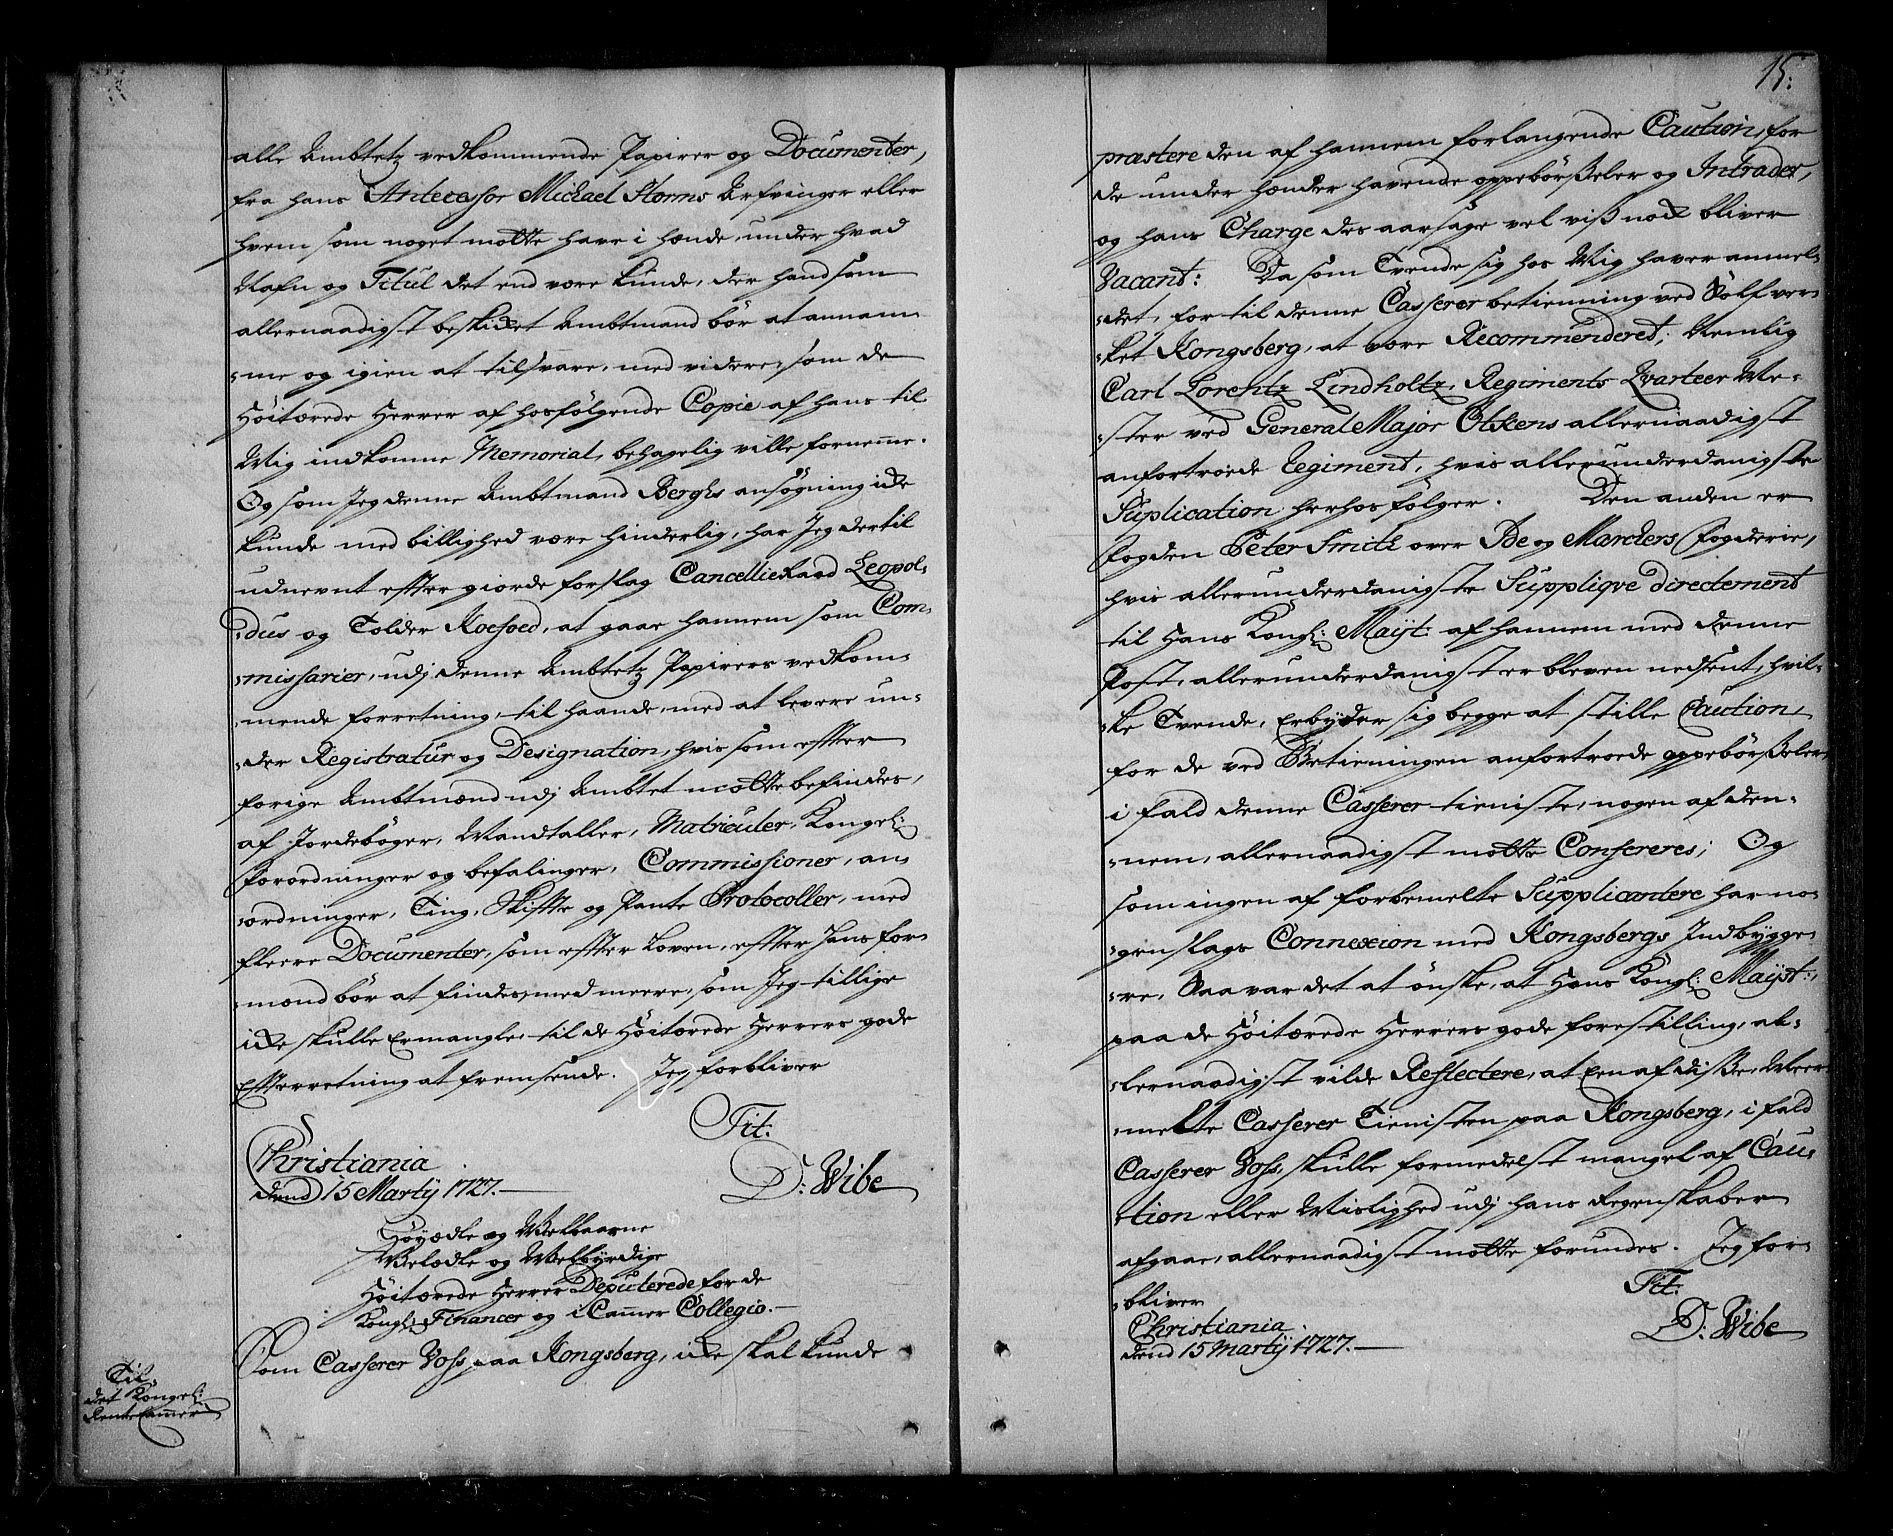 alle Ambtetz vedkommende Papirer og Documenter,
fra hans Antecessor Michael Storms Arfvinger eller
hvem som noget motte have i hænde, under hvad
Nafn og Titul det end være kunde, der hand som
allernaadigst beskicket Ambtmand bör at annam-
-me og igien at tilsvare, med videre, som de
Höitærede Herrer af hosfölgende Copie af hans til
Mig indkomne Memorial, behagelig ville fornemme.
Og som Jeg denne Ambtmand Berghs ansögning icke
kunde med billighed være hinderlig, har Jeg dertil
udnevnt effter giorde forslag CancellieRaad Leopol-
-dus og Tolder Roesoed, at gaae hannem som Com-
-missarier, udj denne Ambtetz Papirers vedkom-
-mende forretning, til haande, med at levere un-
-der Registratur og Designation, hvis som effter
forige Ambtmænd udj Ambtet motte befindes,
af Jordebøger, Mandtaller, Matriculer, Kongel:
forordninger og befalinger, Commissioner, an-
-ordninger, Ting, Skiffte og Pante Protocoller, med
fleere Documenter, som effter Loven, effter hans for-
-mand bör at findes, med meere, som Jeg tillige
icke skulle Ermangle, til de Höitærede Herrers gode
Effterretning at fremsende. Jeg forbliver
Tit:
Christiania
dend 15 Martij 1727.
D: Wibe
Höyædle og Velbaarne
Velædle og Velbyrdige
Höitærede Herrer Deputerede for de
Kongl: Financer og i Cammer Collegio.
Til
det Kongel:
RenteCammer
Som Casserer Voss paa Kongsberg, icke skal kunde
15:
præstere den af hannem forlangende Caution, for
de under hænder havende oppebörßeler og Intrader,
og hans Charge des aarsage vel viß nock bliver
Vacant: Da som Tvende sig hos Mig haver anmel-
-det, for til denne Casserer betienning ved Sölfver-
-ket Kongsberg, at være Recommenderet; Nemlig
Carl Lorentz Lindholtz, Regiments Qvarteer Me-
-ster ved General Major Otkens allernaadigst
anfortroede Regiment, hvis allerunderdanigste
Suplication herhos fölger. Den anden er
fogden Peter Smith over Ide og Marckers fogderie,
hvis allerunderdanigste Supplique directement
til Hans Kongl: Mayst: af hannem med denne
Post, allerunderdanigst er bleven nedsent, hvil-
-ke Tvende, Erbyder sig begge at stille Caution,
for de ved Betieningen anfortroede oppebörßeler,
i fald denne Casserer tieniste, nogen af den-
-nem, allernaadigst motte Confereres; Og
som ingen af forbemelte Supplicantere har no-
-genslags Connexion med Kongsbergs Indbygge-
-re, Saa var det at önske, at Hans Kongl: Mayst:
paa de Höitærede Herrers gode forestilling, al-
-lernaadigst vilde Reflectere, at Een af disse, Meer-
-melte Casserer Tienisten paa Kongsberg, i fald
Casserer Voss, skulle formedelst mangel af Cau-
-tion eller Mislighed udj hans Regenskaber
afgaae, allernaadigst motte forundes. Jeg for-
-bliver
Tit:
Christiania
dend 15 Martij 1727.
D: Wibe